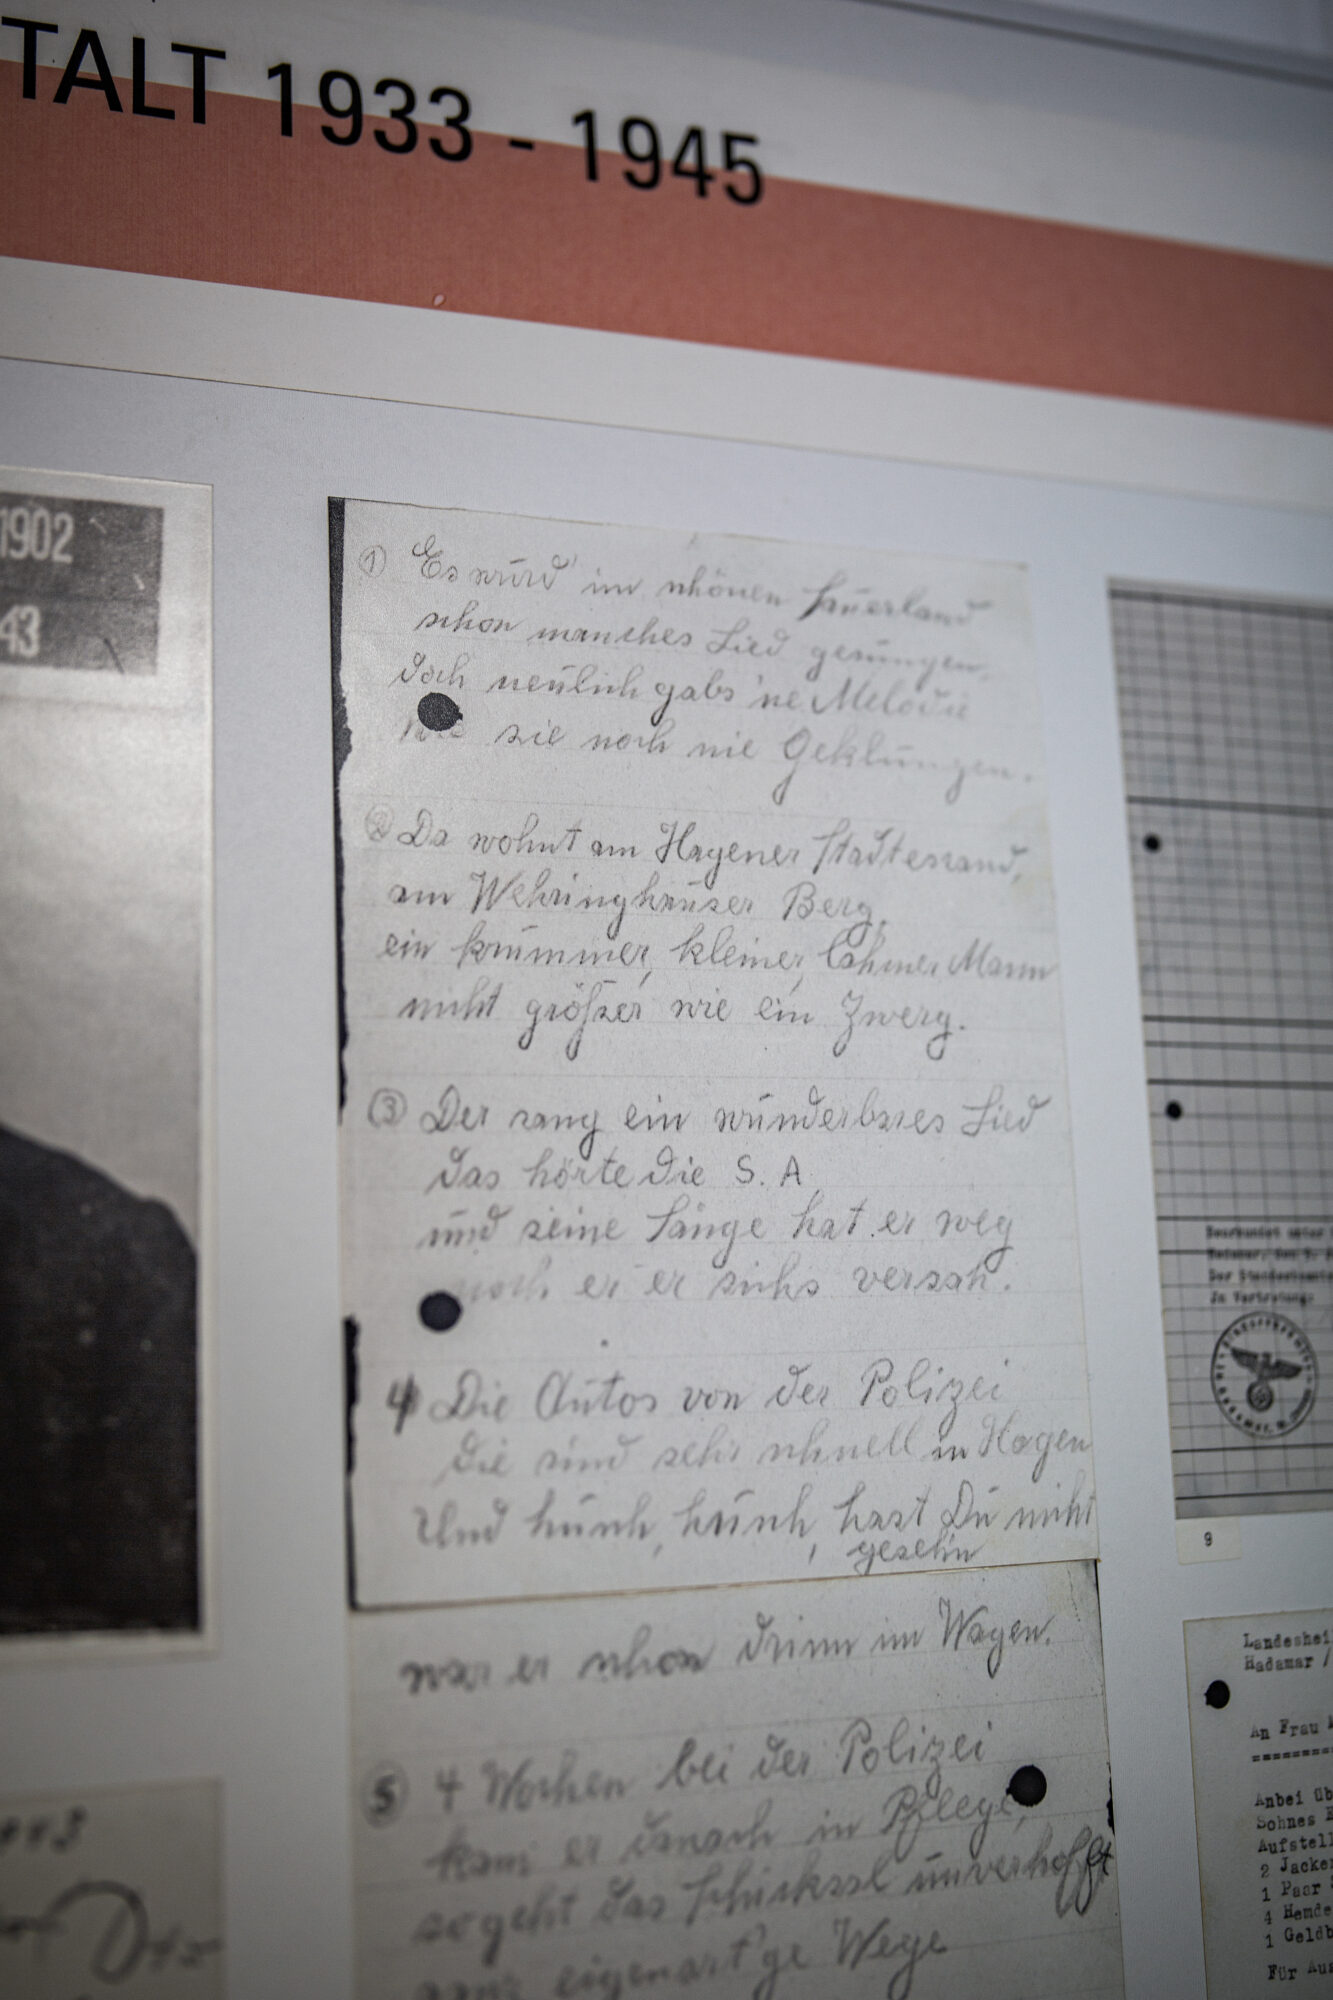 TALT 1933 - 1945
1902
43
① Es würd' im schönen Sauerland
schon manches Lied gesungen,
doch neulich gabs 'ne Melodie
sie noch nie Geklungen.
② Da wohnt am Hagener Stadtesrand,
am Wehringhauser Berg,
ein krummer, kleiner, lahmer Mann
nicht größer wie ein Zwerg.
③ Der sang ein wunderbares Lied
das hörte die S. A
und seine Sänge hat er weg
noch er er sichs versah.
4 Die Autos von der Polizei
die sind sehr schnell in Hagen
Und husch, husch, hast Du nicht
gesehn
war er schon drinn im Wagen.
⑤ 4 Wochen bei der Polizei
kam er danach in Pflege,
so geht das Schicksal unverhofft
ganz eigenart'ge Wege
In Vertretung:
9
Landeshei
Hadamar /
An Frau
=========
Anbei üb
Sohnes
Aufstell
2 Jacken
1 Paar
4 Hemde
1 Geldb
Für Aus